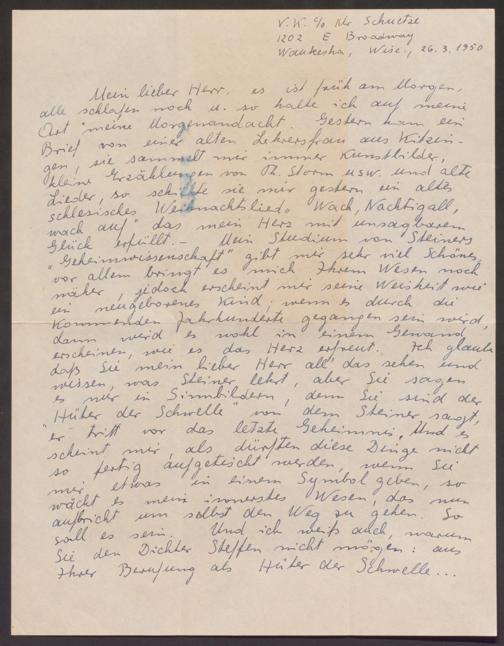 V. K. c/o Mr Schuetze
1202 E Broadway
Waukesha, Wisc., 26.3.1950
Mein lieber Herr, es ist früh am Morgen,
alle schlafen noch u. so halte ich auf meine
Art meine Morgenandacht. Gestern kam ein
Brief von einer alten Lehrersfrau aus Kitzin-
gen, sie sammelt mir immer Kunstbilder,
kleine Erzählungen von Th. Storm usw. und alte
Lieder, so schickte sie mir gestern ein altes
schlesisches Weihnachtslied „Wach, Nachtigall,
wach auf" das mein Herz mit unsagbarem
Glück erfüllt. – Mein Studium von Steiners
"Geheimwissenschaft" gibt mir sehr viel Schönes,
vor allem bringt es mich Ihrem Wesen noch
näher, jedoch erscheint mir seine Weisheit wie
ein neugeborenes Kind; wenn es durch die
kommenden Jahrhunderte gegangen sein wird,
dann wird es wohl in einem Gewand
erscheinen, wie es das Herz erfreut. Ich glaube
daß Sie mein lieber Herr all' das sehen und
wissen, was Steiner lehrt, aber Sie sagen
es nur in Sinnbildern, denn Sie sind der
"Hüter der Schwelle" von dem Steiner sagt,
"er tritt vor das letzte Geheimnis". Und es
scheint mir, als dürften diese Dinge nicht
so fertig aufgetischt werden, wenn Sie
mir etwas in einem Symbol geben, so
wächst es mein innerstes Wesen, das nun
aufbricht um selbst den Weg zu gehen. So
soll es sein. Und ich weiß auch, warum
Sie den Dichter Steffen nicht mögen: aus
Ihrer Berufung als Hüter der Schwelle...